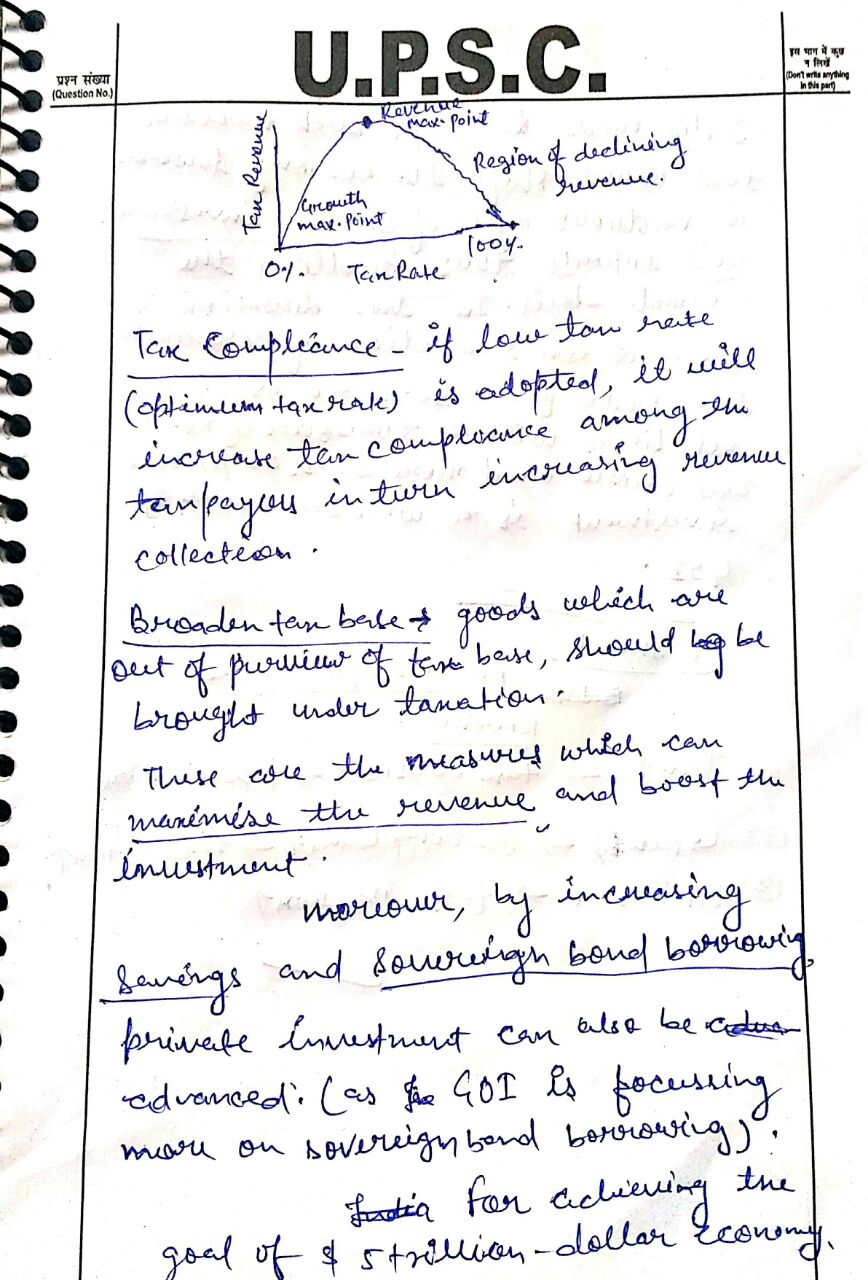 U.P.S.C.
प्रश्न संख्या
(Question No.)
इस भाग में कुछ
न लिखें
(Don't write anything
in this part)
Revenue
max. point
Tax Revenue
Region of declining
revenue
Growth
max. Point
0%.
Tax Rate
100%.
Tax Compliance - if low tax rate
(optimum tax rate) is adopted, it will
increase tax compliance among the
taxpayers in turn increasing revenue
collection.
Broaden tax base → goods which are
out of purview of tax base, should be
brought under taxation.
These are the measures which can
maximise the revenue and boost the
investment.
moreover, by increasing
Savings and Sovereign bond borrowing,
private investment can also be
advanced. (as GOI is focussing
more on sovereign bond borrowing).
For achieving the
goal of $ 5 trillion-dollar economy,